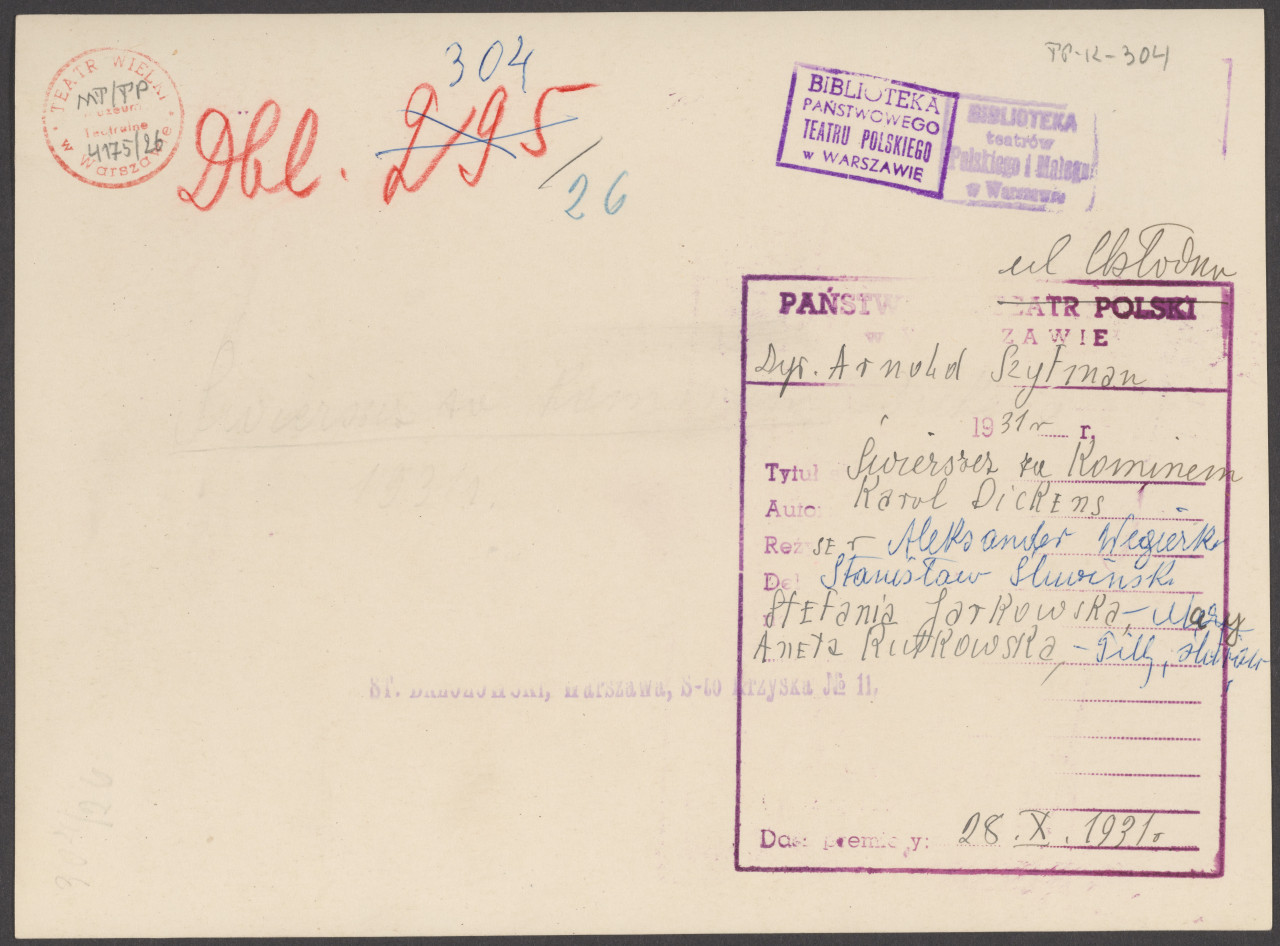 TEATR WIELKI
w Warszawie
MT/TP
Muzeum
Teatralne
4175/26
304
Dbl. 295/26
TP-K-304
BIBLIOTEKA
PAŃSTWOWEGO
TEATRU POLSKIEGO
w WARSZAWIE
BIBLIOTEKA
teatrów
Polskiego i Małego
w Warszawie
ul Chłodna
PAŃSTW TEATR POLSKI
w ZAWIE
Dyr. Arnold Szyfman
1931 r r.
Tytuł Świerszcz za Kominem
Auto: Karol Dickens
Reżyser Aleksander Węgierko
De Stanisław Śliwiński
Stefania Jarkowska, - Mary
Aneta Rutkowska, - Tilly,
ST. BRZOZOWSKI, Warszawa, S-to Krzyska № 11.
Data premiery: 28.X.1931r
Świerszcz za Komi
1931
304/26